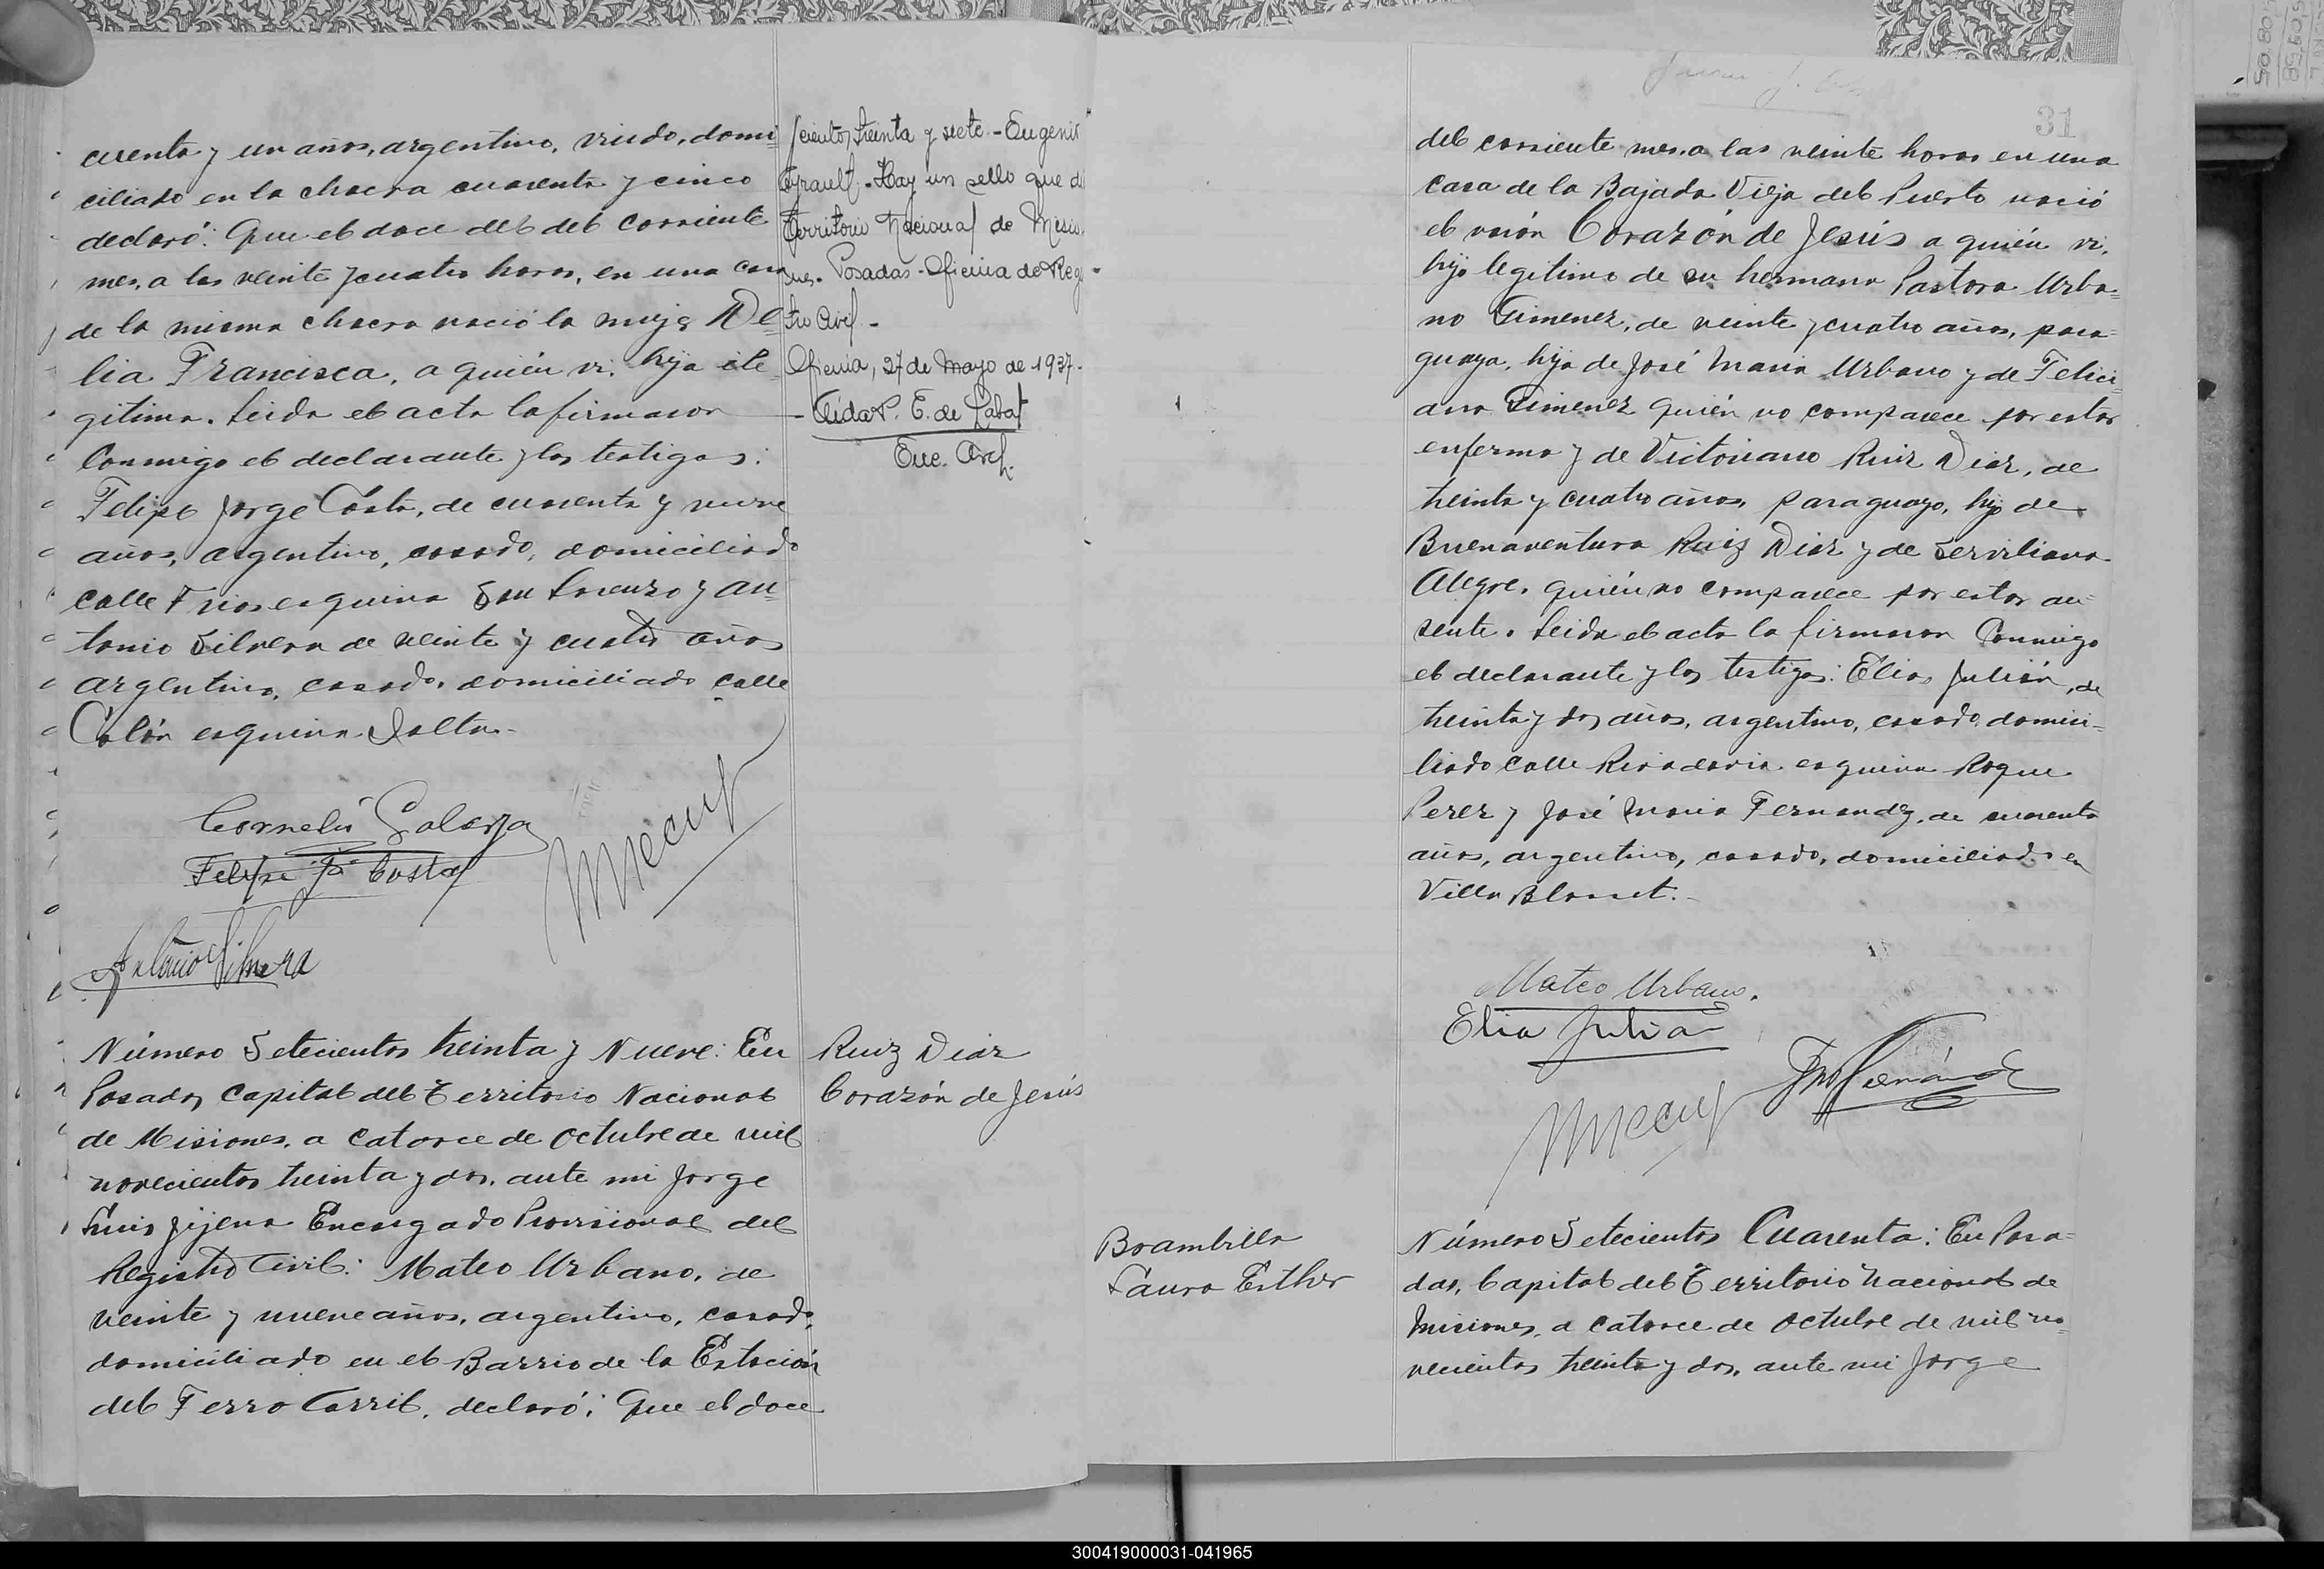 cuenta y un años, argentino, viudo, domi=
ciliado en la chacra cuarenta y cinco
declaró: Que el doce del del corriente
mes, a las veinte y cuatro horas, en una casa
de la misma chacra nació la mujer De=
lia Francisca, a quién vi, hija ile=
gitima. Leida el acta la firmaron
Conmigo el declarante y los testigos:
Felipe Jorge Costa, de cuarenta y nueve
años, argentino, casado, domiciliado
calle Frias esquina San Lorenzo y An=
tonio Silvera de veinte y cuatro años
argentino, casado, domiciliado calle
Colón esquina Salta.-
Cornelio Galarza
Felipe J. Costa
Antonio Silvera
Número Setecientos treinta y Nueve: En
Posadas Capital del Territorio Nacional
de Misiones, a catorce de Octubre de mil
novecientos treinta y dos, ante mi Jorge
Luis Jijena Encargado Provisional del
Registro Civil: Mateo Urbano, de
veinte y nueve años, argentino, casado,
domiciliado en el Barrio de la Estación
del Ferro Carril, declaró: Que el doce
cientos treinta y siete.- Eugenio
Hay un sello que di
Territorio Nacional de Misio.
nes. Posadas - Oficina de Regis
tro Civil -
Oficina, 27 de Mayo de 1937.
Aida P. E. de Labat
Enc. Arch.
Ruiz Diaz
Corazón de Jesús
31
del corriente mes, a las veinte horas en una
casa de la Bajada Vieja del Puerto nació
el varón Corazón de Jesús a quién vi,
hijo legitimo de su hermana Pastora Urba=
no Gimenez, de veinte y cuatro años, para=
guaya, hija de José Maria Urbano y de Felici=
ana Gimenez quién no comparece por estar
enferma y de Victoriano Ruiz Diaz, de
treinta y cuatro años, paraguayo, hijo de
Buenaventura Ruiz Diaz y de Serviliana
Alegre, quién no comparece por estar au=
sente. Leida el acta la firmaron Conmigo
el declarante y los testigos: Elias Julián, de
treinta y dos años, argentino, casado, domici=
liado calle Rivadavia esquina Roque
Perez y José Maria Fernandez, de cuarenta
años, argentino, casado, domiciliado en
Villa Blosset.-
Mateo Urbano.
Elia Julia
Brambilla
Laura Esther
Número Setecientos Cuarenta: En Posa=
das, Capital del Territorio Nacional de
Misiones, a catorce de Octubre de mil no=
vecientos treinta y dos, ante mi Jorge
300419000031-041965